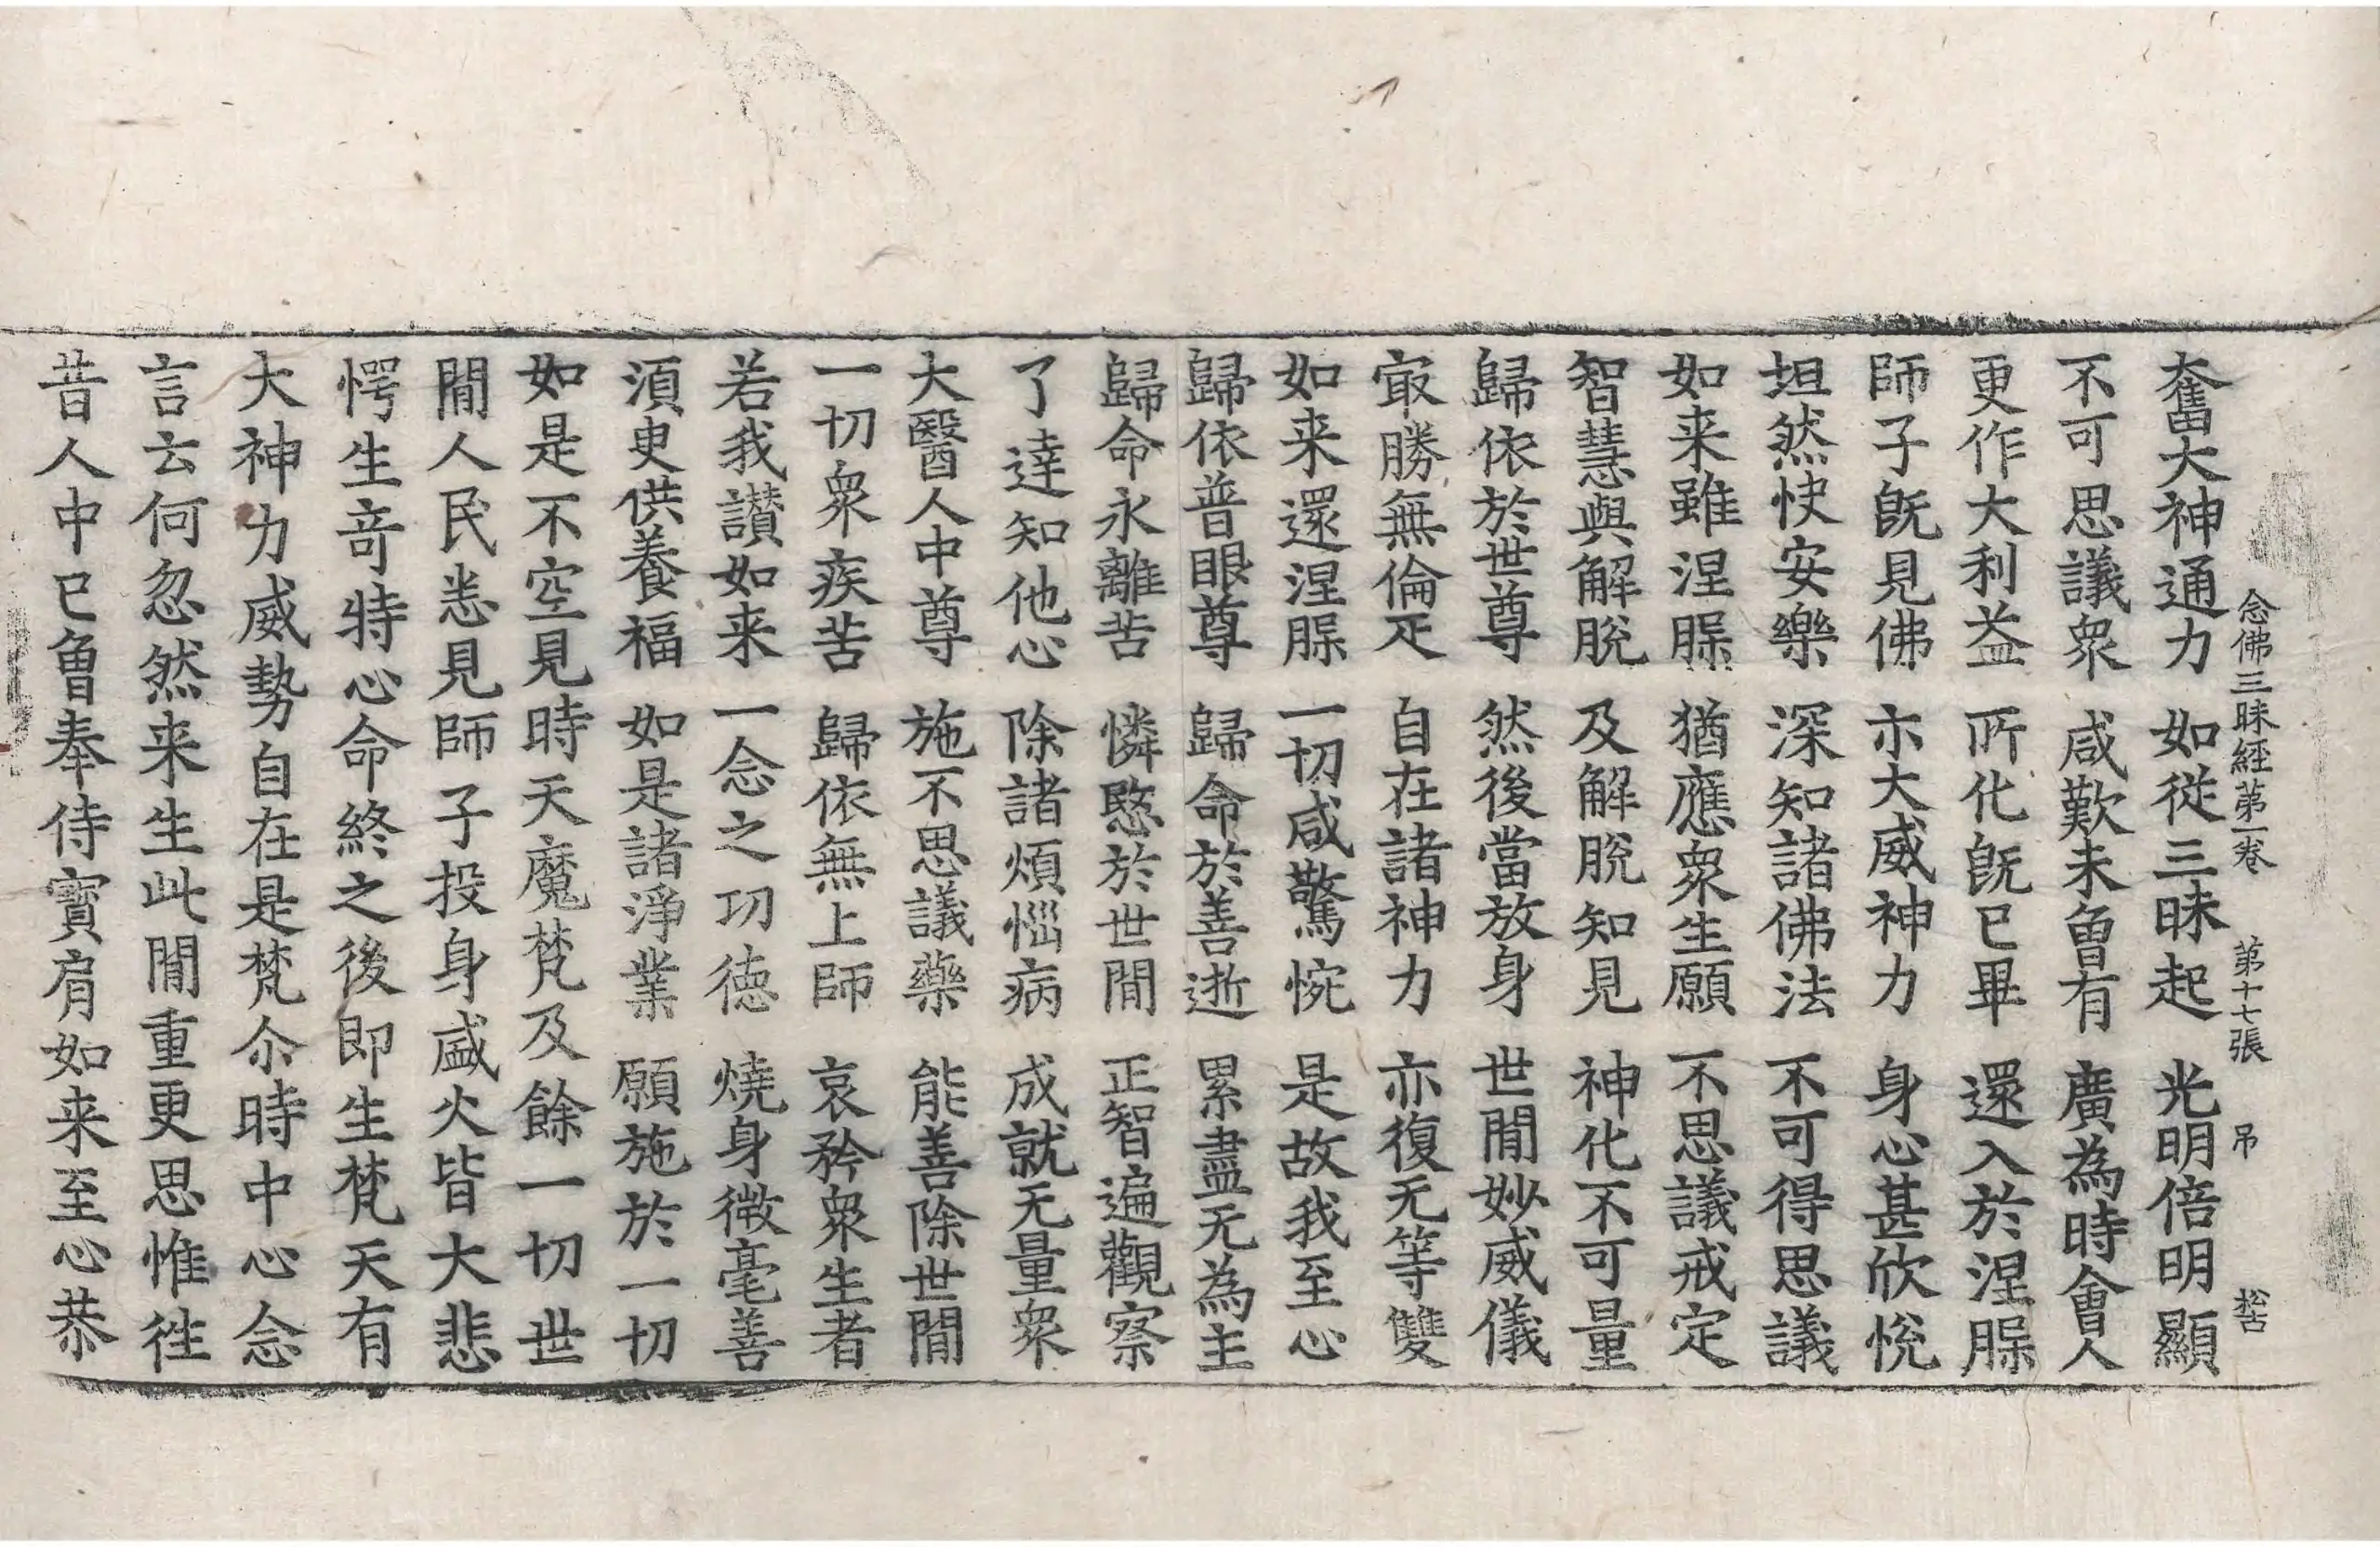 念佛三昧經第一卷 第十七張 吊 松古
奮大神通力 如從三昧起 光明倍明顯
不可思議衆 咸歎未曾有 廣為時會人
更作大利益 所化旣已畢 還入於涅槃
師子旣見佛 亦大威神力 身心甚欣悅
坦然快安樂 深知諸佛法 不可得思議
如来雖涅槃 猶應衆生願 不思議戒定
智慧與解脫 及解脫知見 神化不可量
歸依於世尊 然後當放身 世閒妙威儀
冣勝無倫疋 自在諸神力 亦復无等雙
如来還涅槃 一切咸驚惋 是故我至心
歸依普眼尊 歸命於善逝 累盡无為主
歸命永離苦 憐愍於世閒 正智遍觀察
了達知他心 除諸煩惱病 成就无量衆
大醫人中尊 施不思議藥 能善除世閒
一切衆疾苦 歸依無上師 哀矜衆生者
若我讃如来 一念之功德 燒身微毫善
須臾供養福 如是諸淨業 願施於一切
如是不空見時天魔梵及餘一切世
閒人民悉見師子投身盛火皆大悲
愕生竒特心命終之後即生梵天有
大神力威勢自在是梵尒時中心念
言云何忽然来生此閒重更思惟徃
昔人中已曾奉侍寶肩如来至心恭